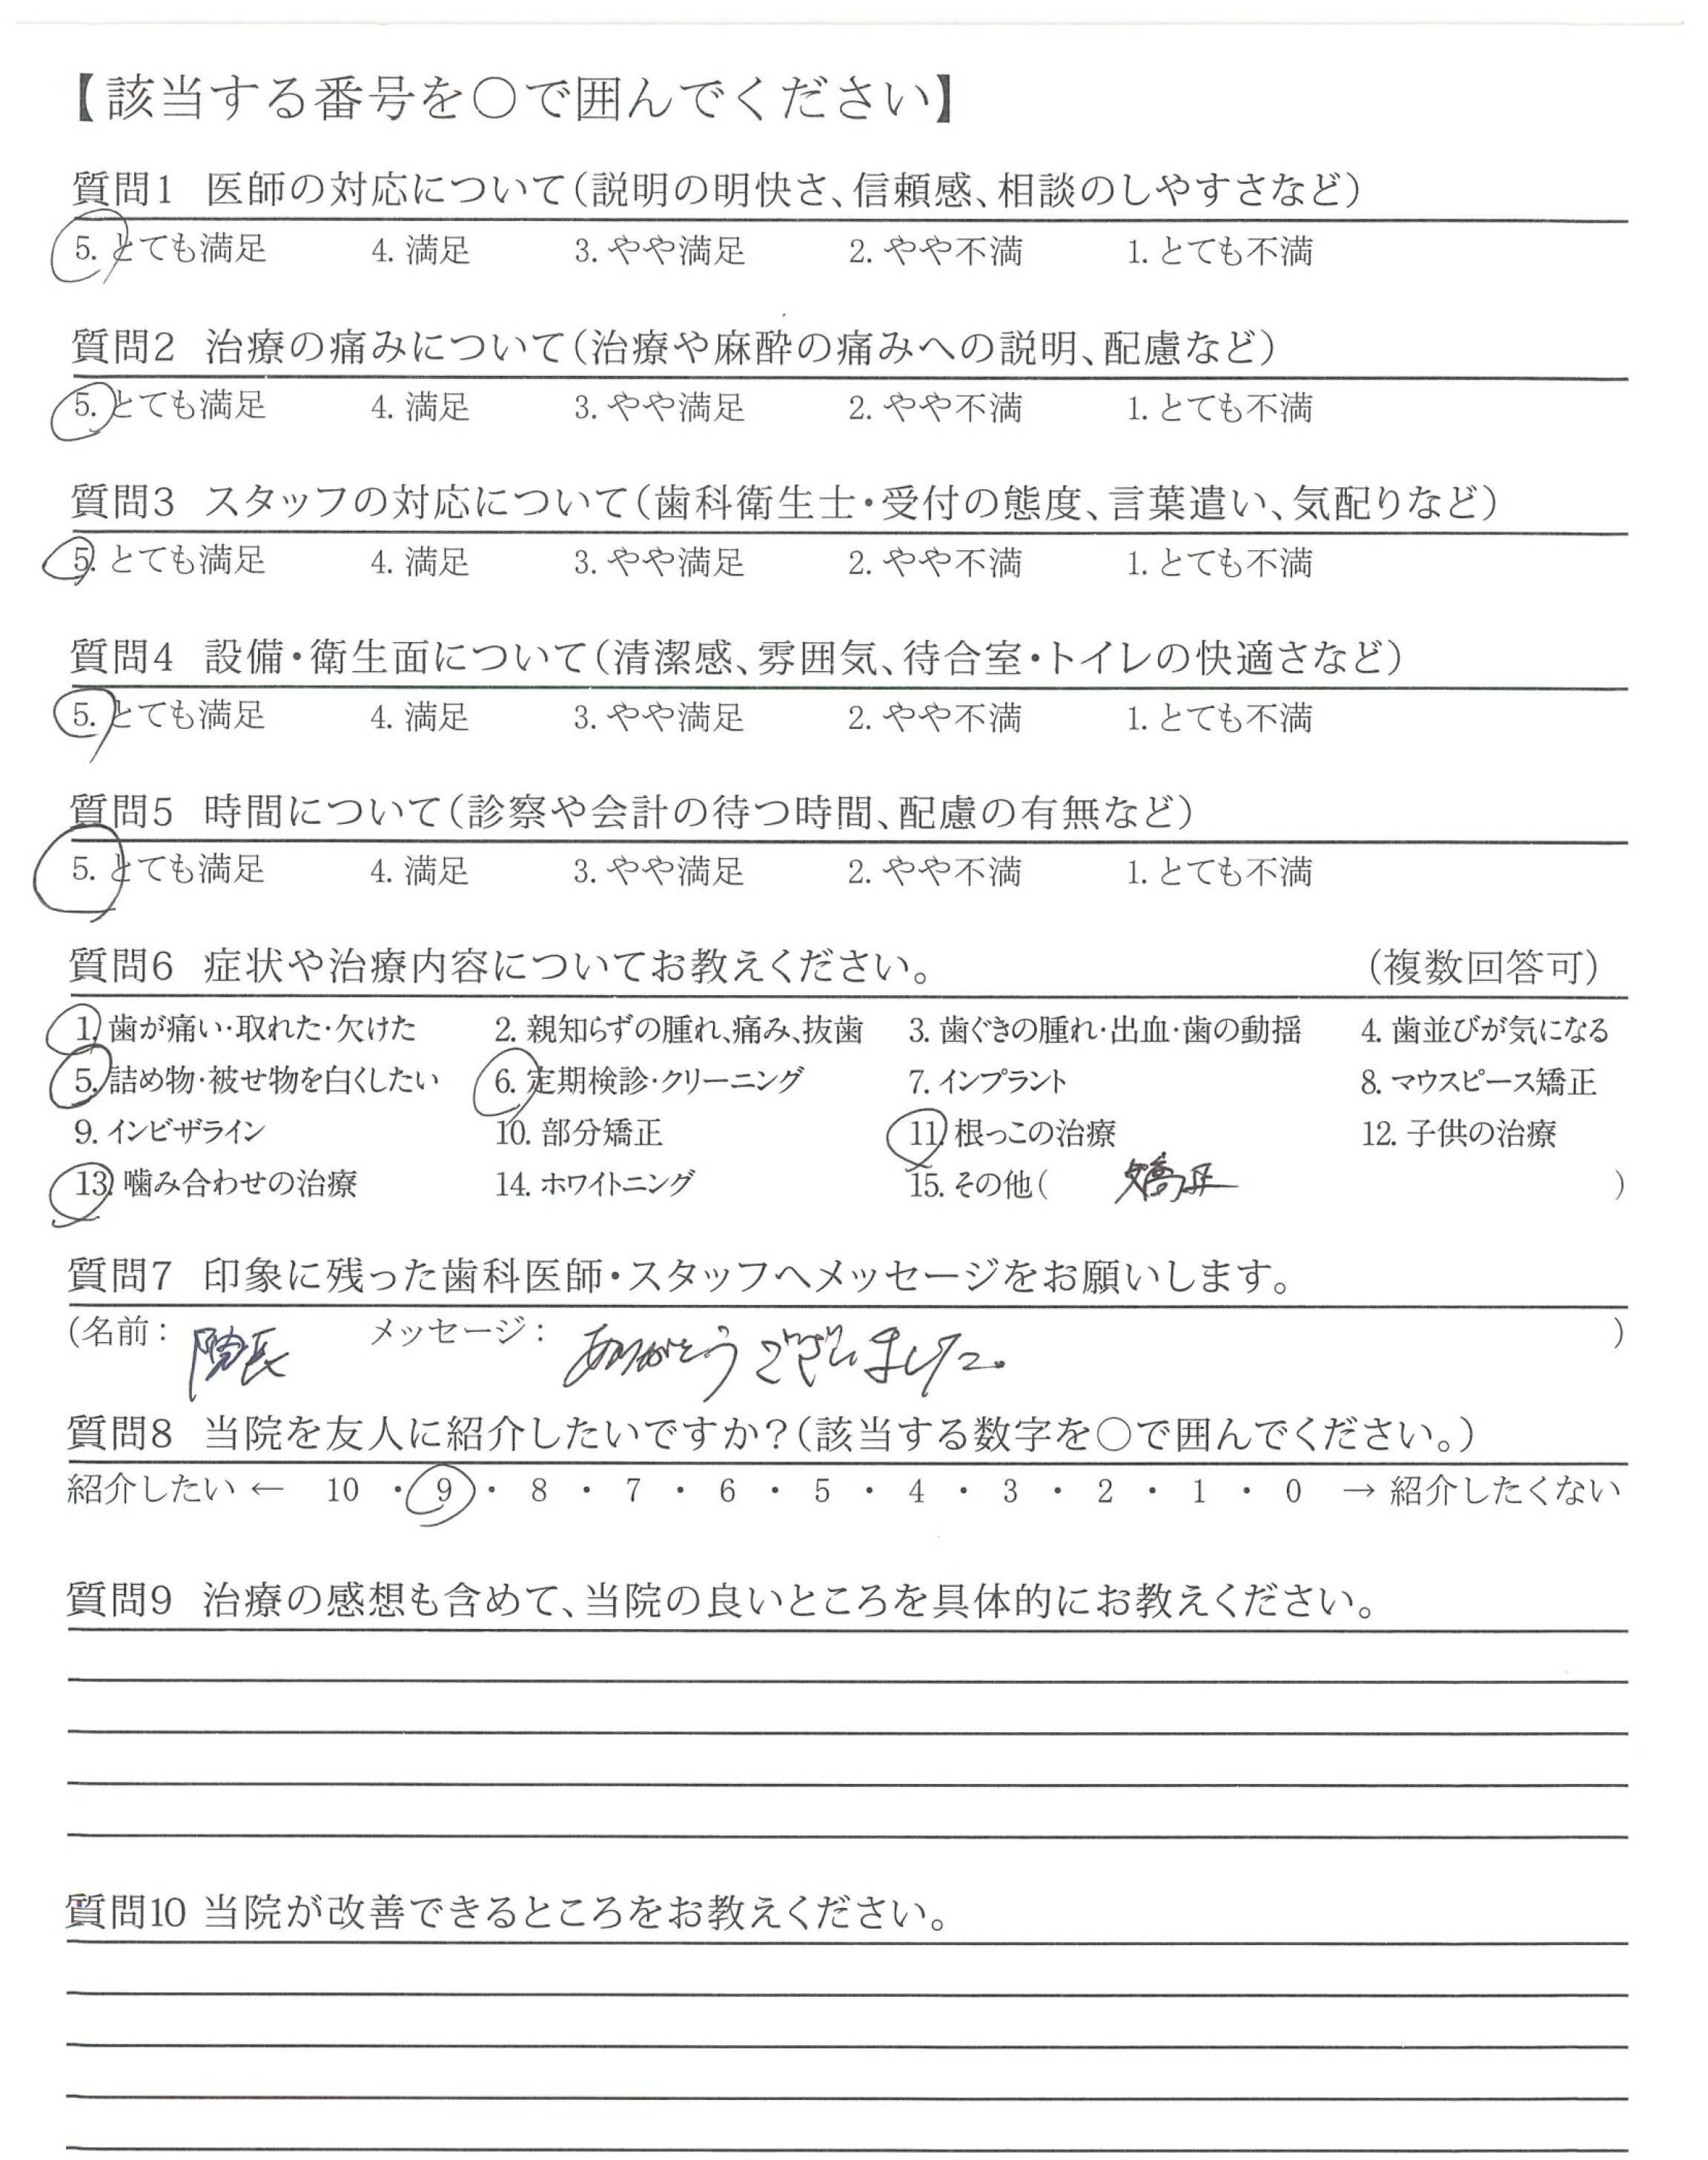 【該当する番号を〇で囲んでください】
質問1 医師の対応について(説明の明快さ、信頼感、相談のしやすさなど)
5. とても満足 4. 満足 3. やや満足 2. やや不満 1. とても不満
質問2 治療の痛みについて(治療や麻酔の痛みへの説明、配慮など)
5. とても満足 4. 満足 3. やや満足 2. やや不満 1. とても不満
質問3 スタッフの対応について(歯科衛生士・受付の態度、言葉遣い、気配りなど)
5. とても満足 4. 満足 3. やや満足 2. やや不満 1. とても不満
質問4 設備・衛生面について(清潔感、雰囲気、待合室・トイレの快適さなど)
5. とても満足 4. 満足 3. やや満足 2. やや不満 1. とても不満
質問5 時間について(診察や会計の待つ時間、配慮の有無など)
5. とても満足 4. 満足 3. やや満足 2. やや不満 1. とても不満
質問6 症状や治療内容についてお教えください。 (複数回答可)
1. 歯が痛い・取れた・欠けた 2. 親知らずの腫れ、痛み、抜歯 3. 歯ぐきの腫れ・出血・歯の動揺 4. 歯並びが気になる
5. 詰め物・被せ物を白くしたい 6. 定期検診・クリーニング 7. インプラント 8. マウスピース矯正
9. インビザライン 10. 部分矯正 11. 根っこの治療 12. 子供の治療
13. 噛み合わせの治療 14. ホワイトニング 15. その他( 矯正 )
質問7 印象に残った歯科医師・スタッフへメッセージをお願いします。
(名前: 院長 メッセージ: ありがとうございました。 )
質問8 当院を友人に紹介したいですか?(該当する数字を〇で囲んでください。)
紹介したい ← 10 ・ 9 ・ 8 ・ 7 ・ 6 ・ 5 ・ 4 ・ 3 ・ 2 ・ 1 ・ 0 → 紹介したくない
質問9 治療の感想も含めて、当院の良いところを具体的にお教えください。
質問10 当院が改善できるところをお教えください。